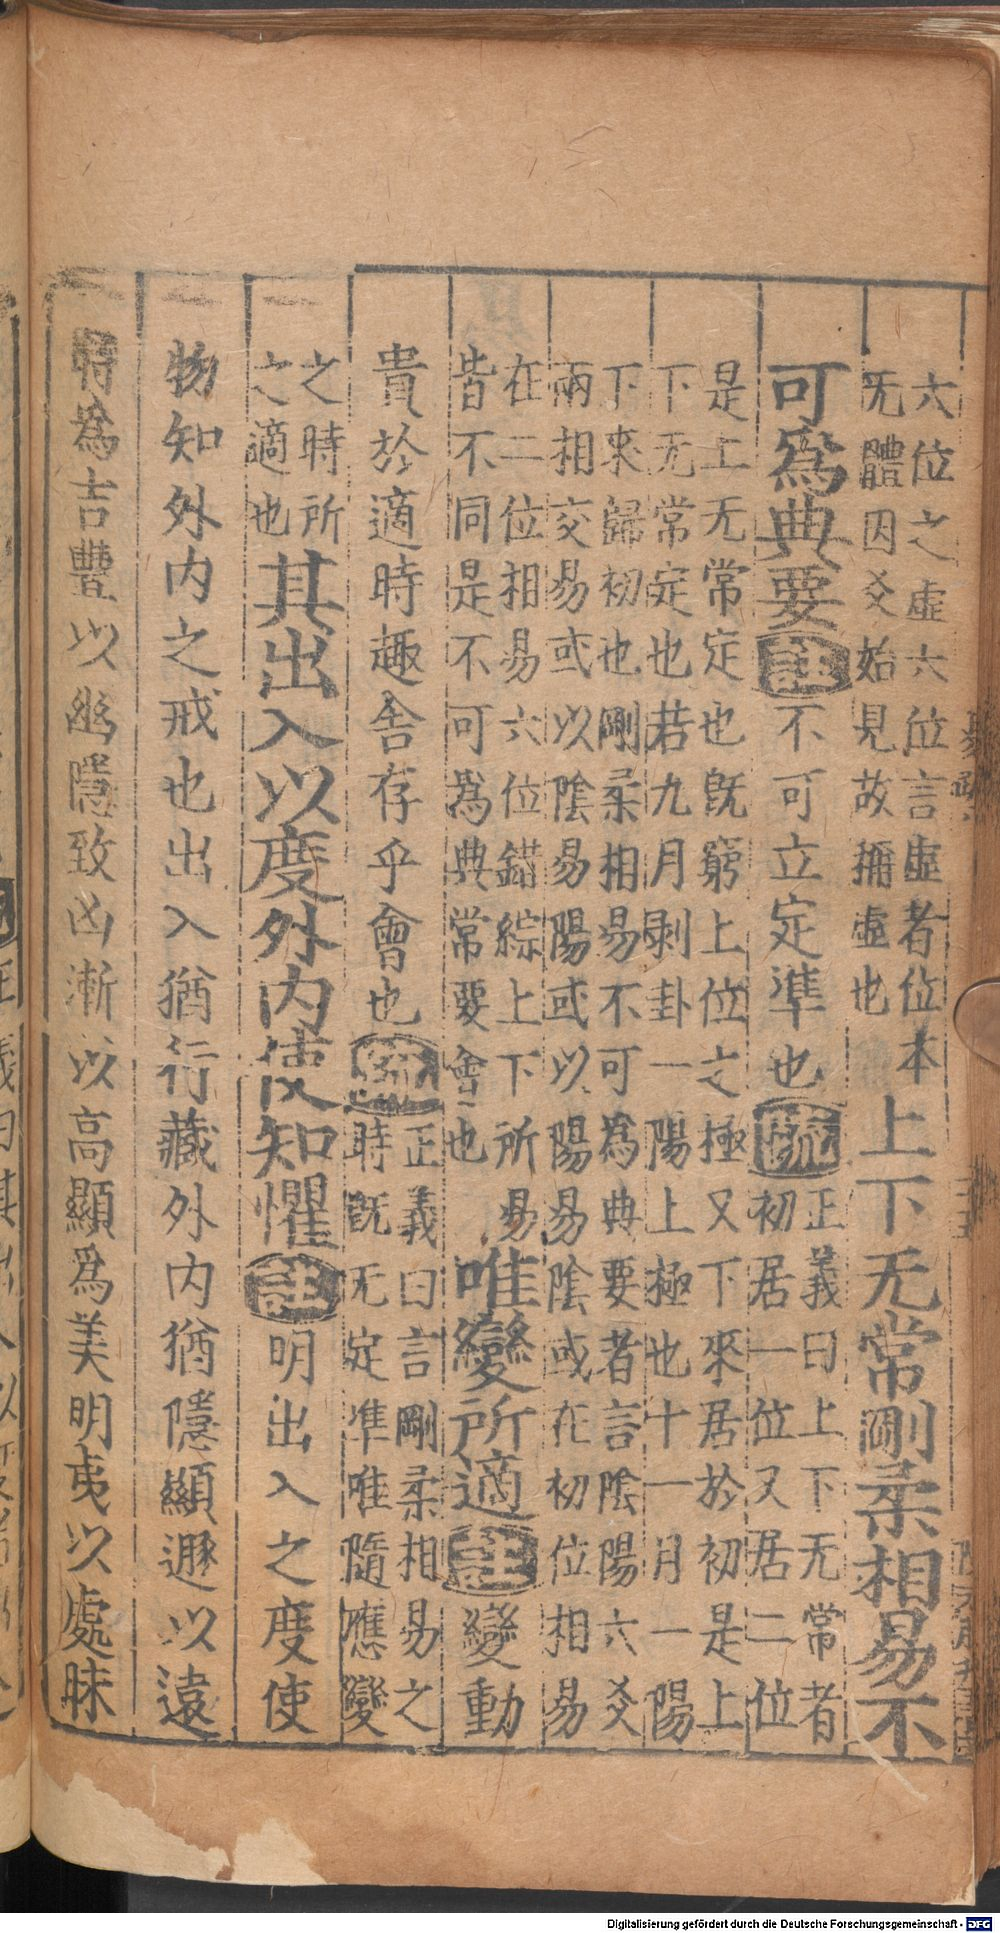 六位之虛六位言虛者位本
无體因爻始見故稱虛也
上下无常剛柔相易不
可爲典要
註
不可立定準也
疏
正義曰上下无常者
初居一位又居二位
是上无常定也旣窮上位之極又下來居於初是上
下无常定也若九月剥卦一陽上極也十一月一陽
下來歸初也剛柔相易不可爲典要者言陰陽六爻
兩相交易或以陰易陽或以陽易陰或在初位相易
在二位相易六位錯綜上下所易
皆不同是不可爲典常要會也
唯變所適
註
變動
貴於適時趣舍存乎會也
疏
正義曰言剛柔相易之
時旣无定準唯隨應變
之時所
之適也
其出入以度外内使知懼
註
明出入之度使
物知外内之戒也出入猶行藏外内猶隱顯遯以遠
時爲吉豐以幽隱致凶漸以高顯爲美明夷以處昧
Digitalisierung gefördert durch die Deutsche Forschungsgemeinschaft - DFG